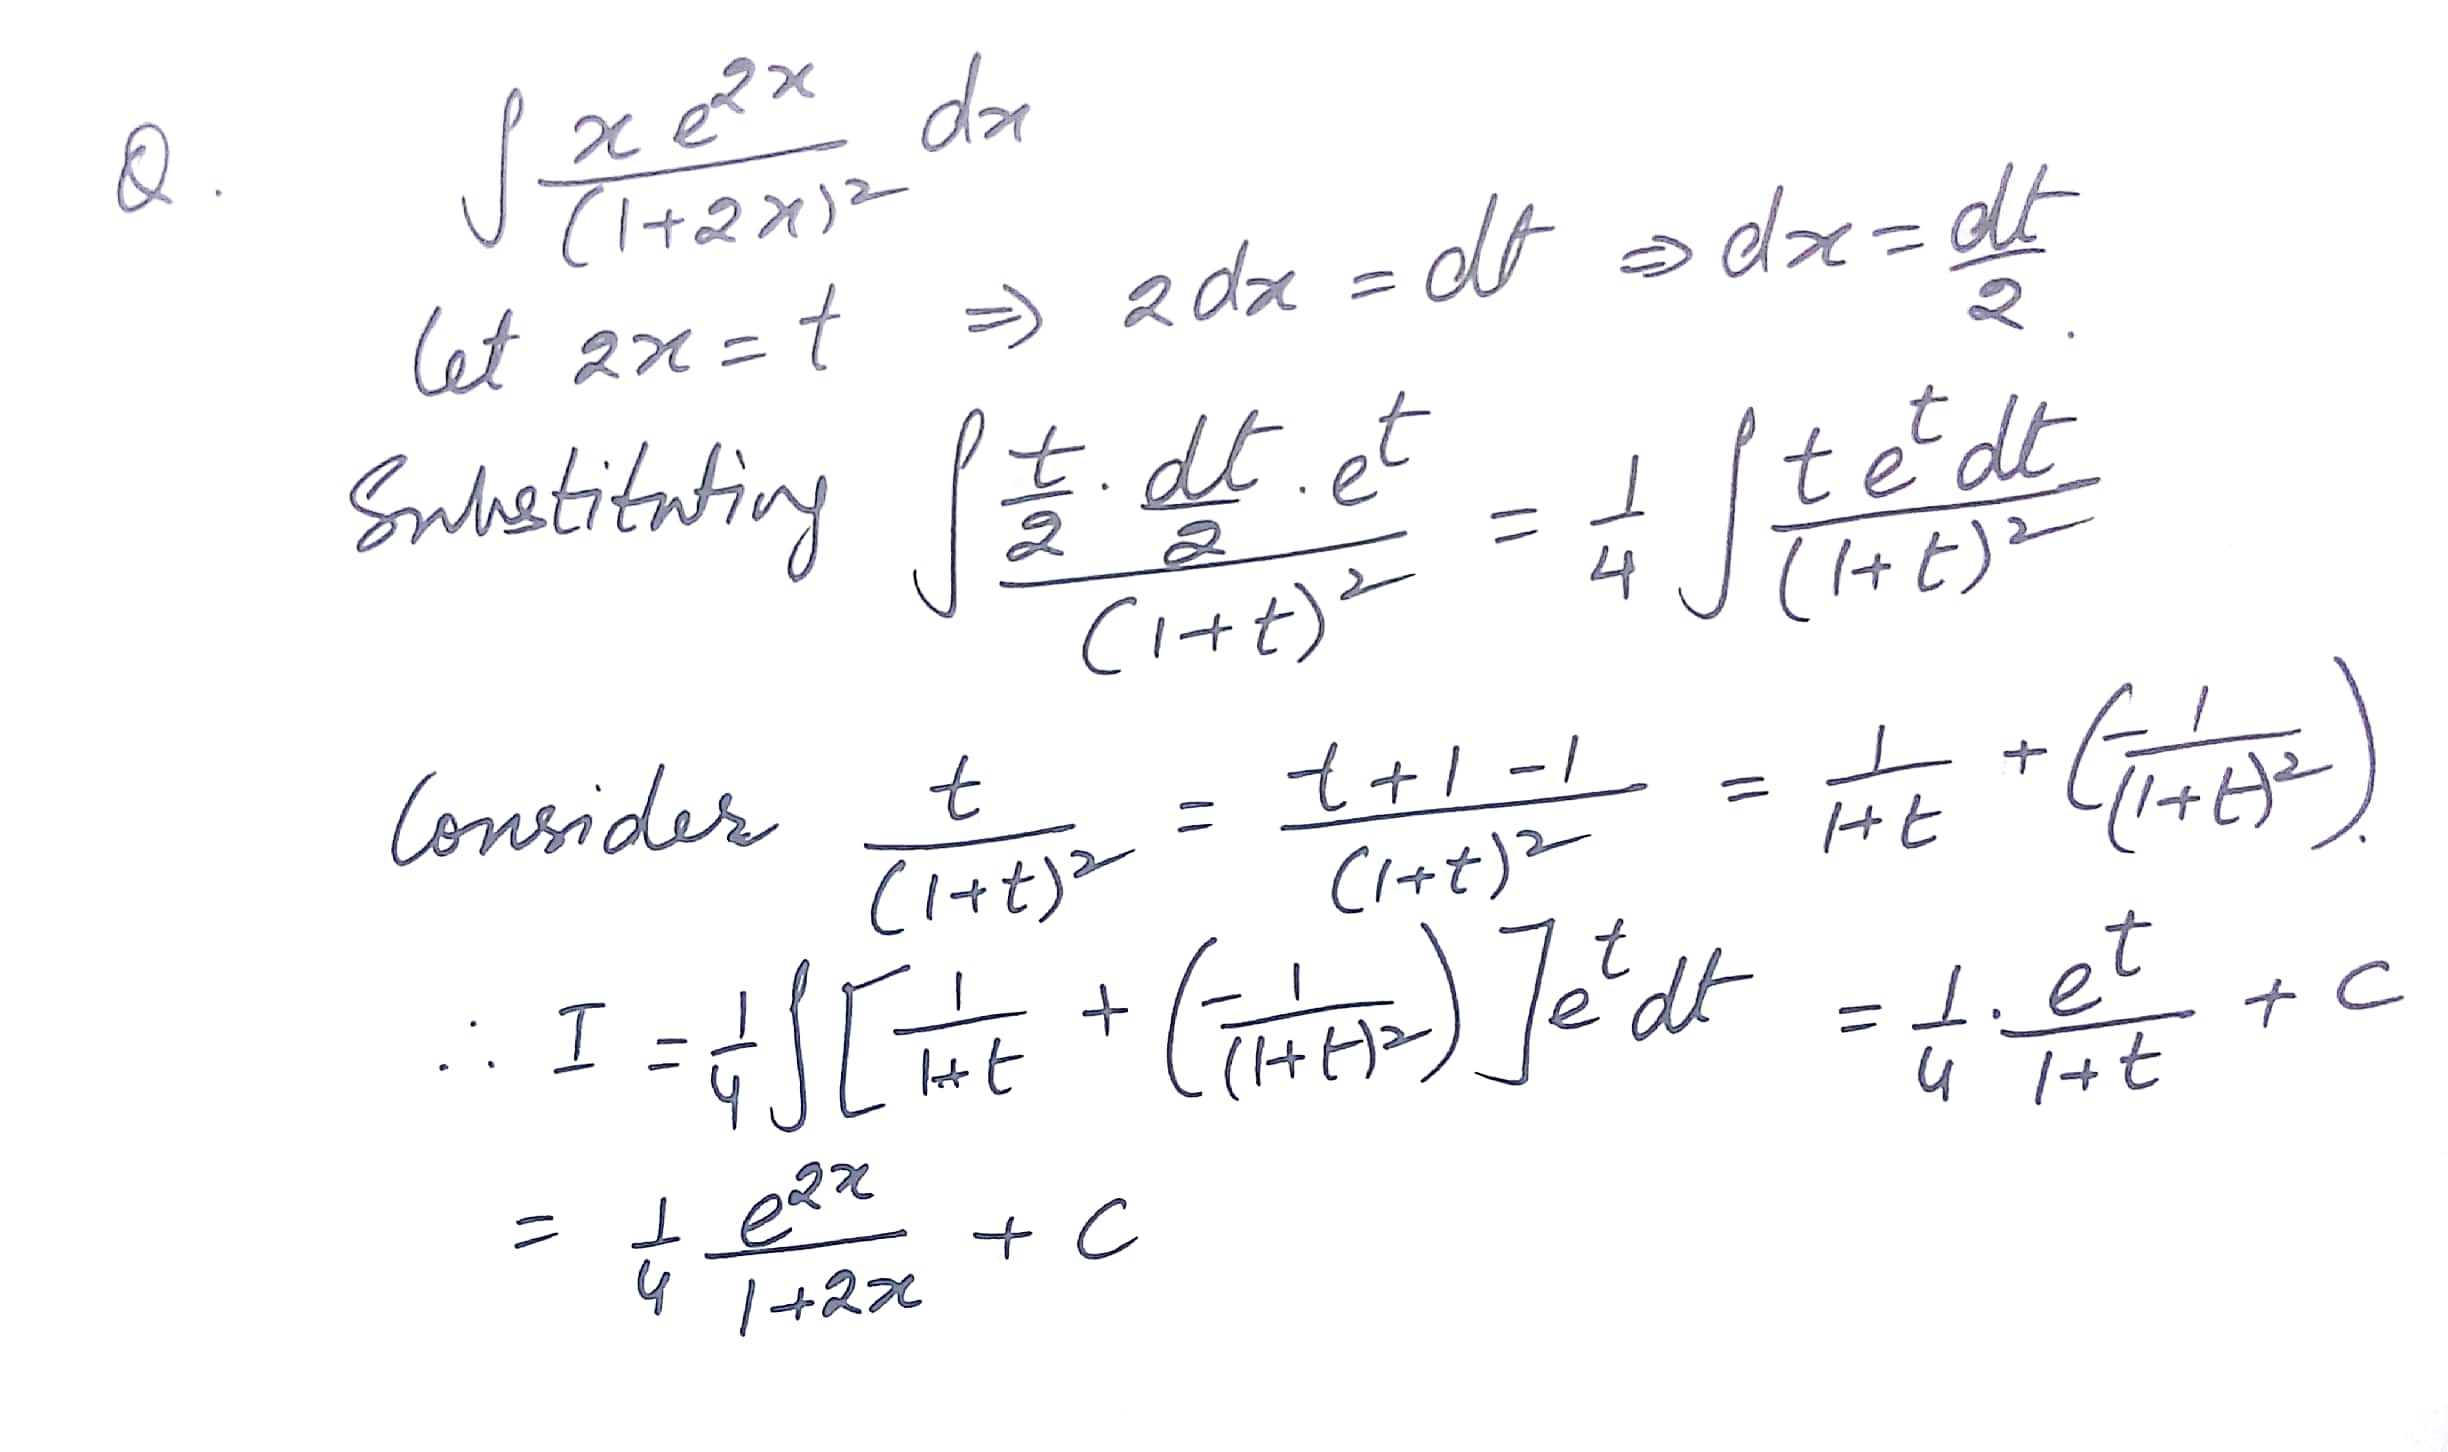 Q. ∫ x e^{2x} / (1+2x)^2 dx
Let 2x = t ⇒ 2dx = dt ⇒ dx = dt/2.
Substituting ∫ (t/2 · dt/2 · e^t) / (1+t)^2 = 1/4 ∫ t e^t dt / (1+t)^2
Consider t / (1+t)^2 = (t+1-1) / (1+t)^2 = 1/(1+t) + (-1/(1+t)^2).
∴ I = 1/4 ∫ [1/(1+t) + (-1/(1+t)^2)] e^t dt = 1/4 · e^t/(1+t) + C
= 1/4 e^{2x}/(1+2x) + C